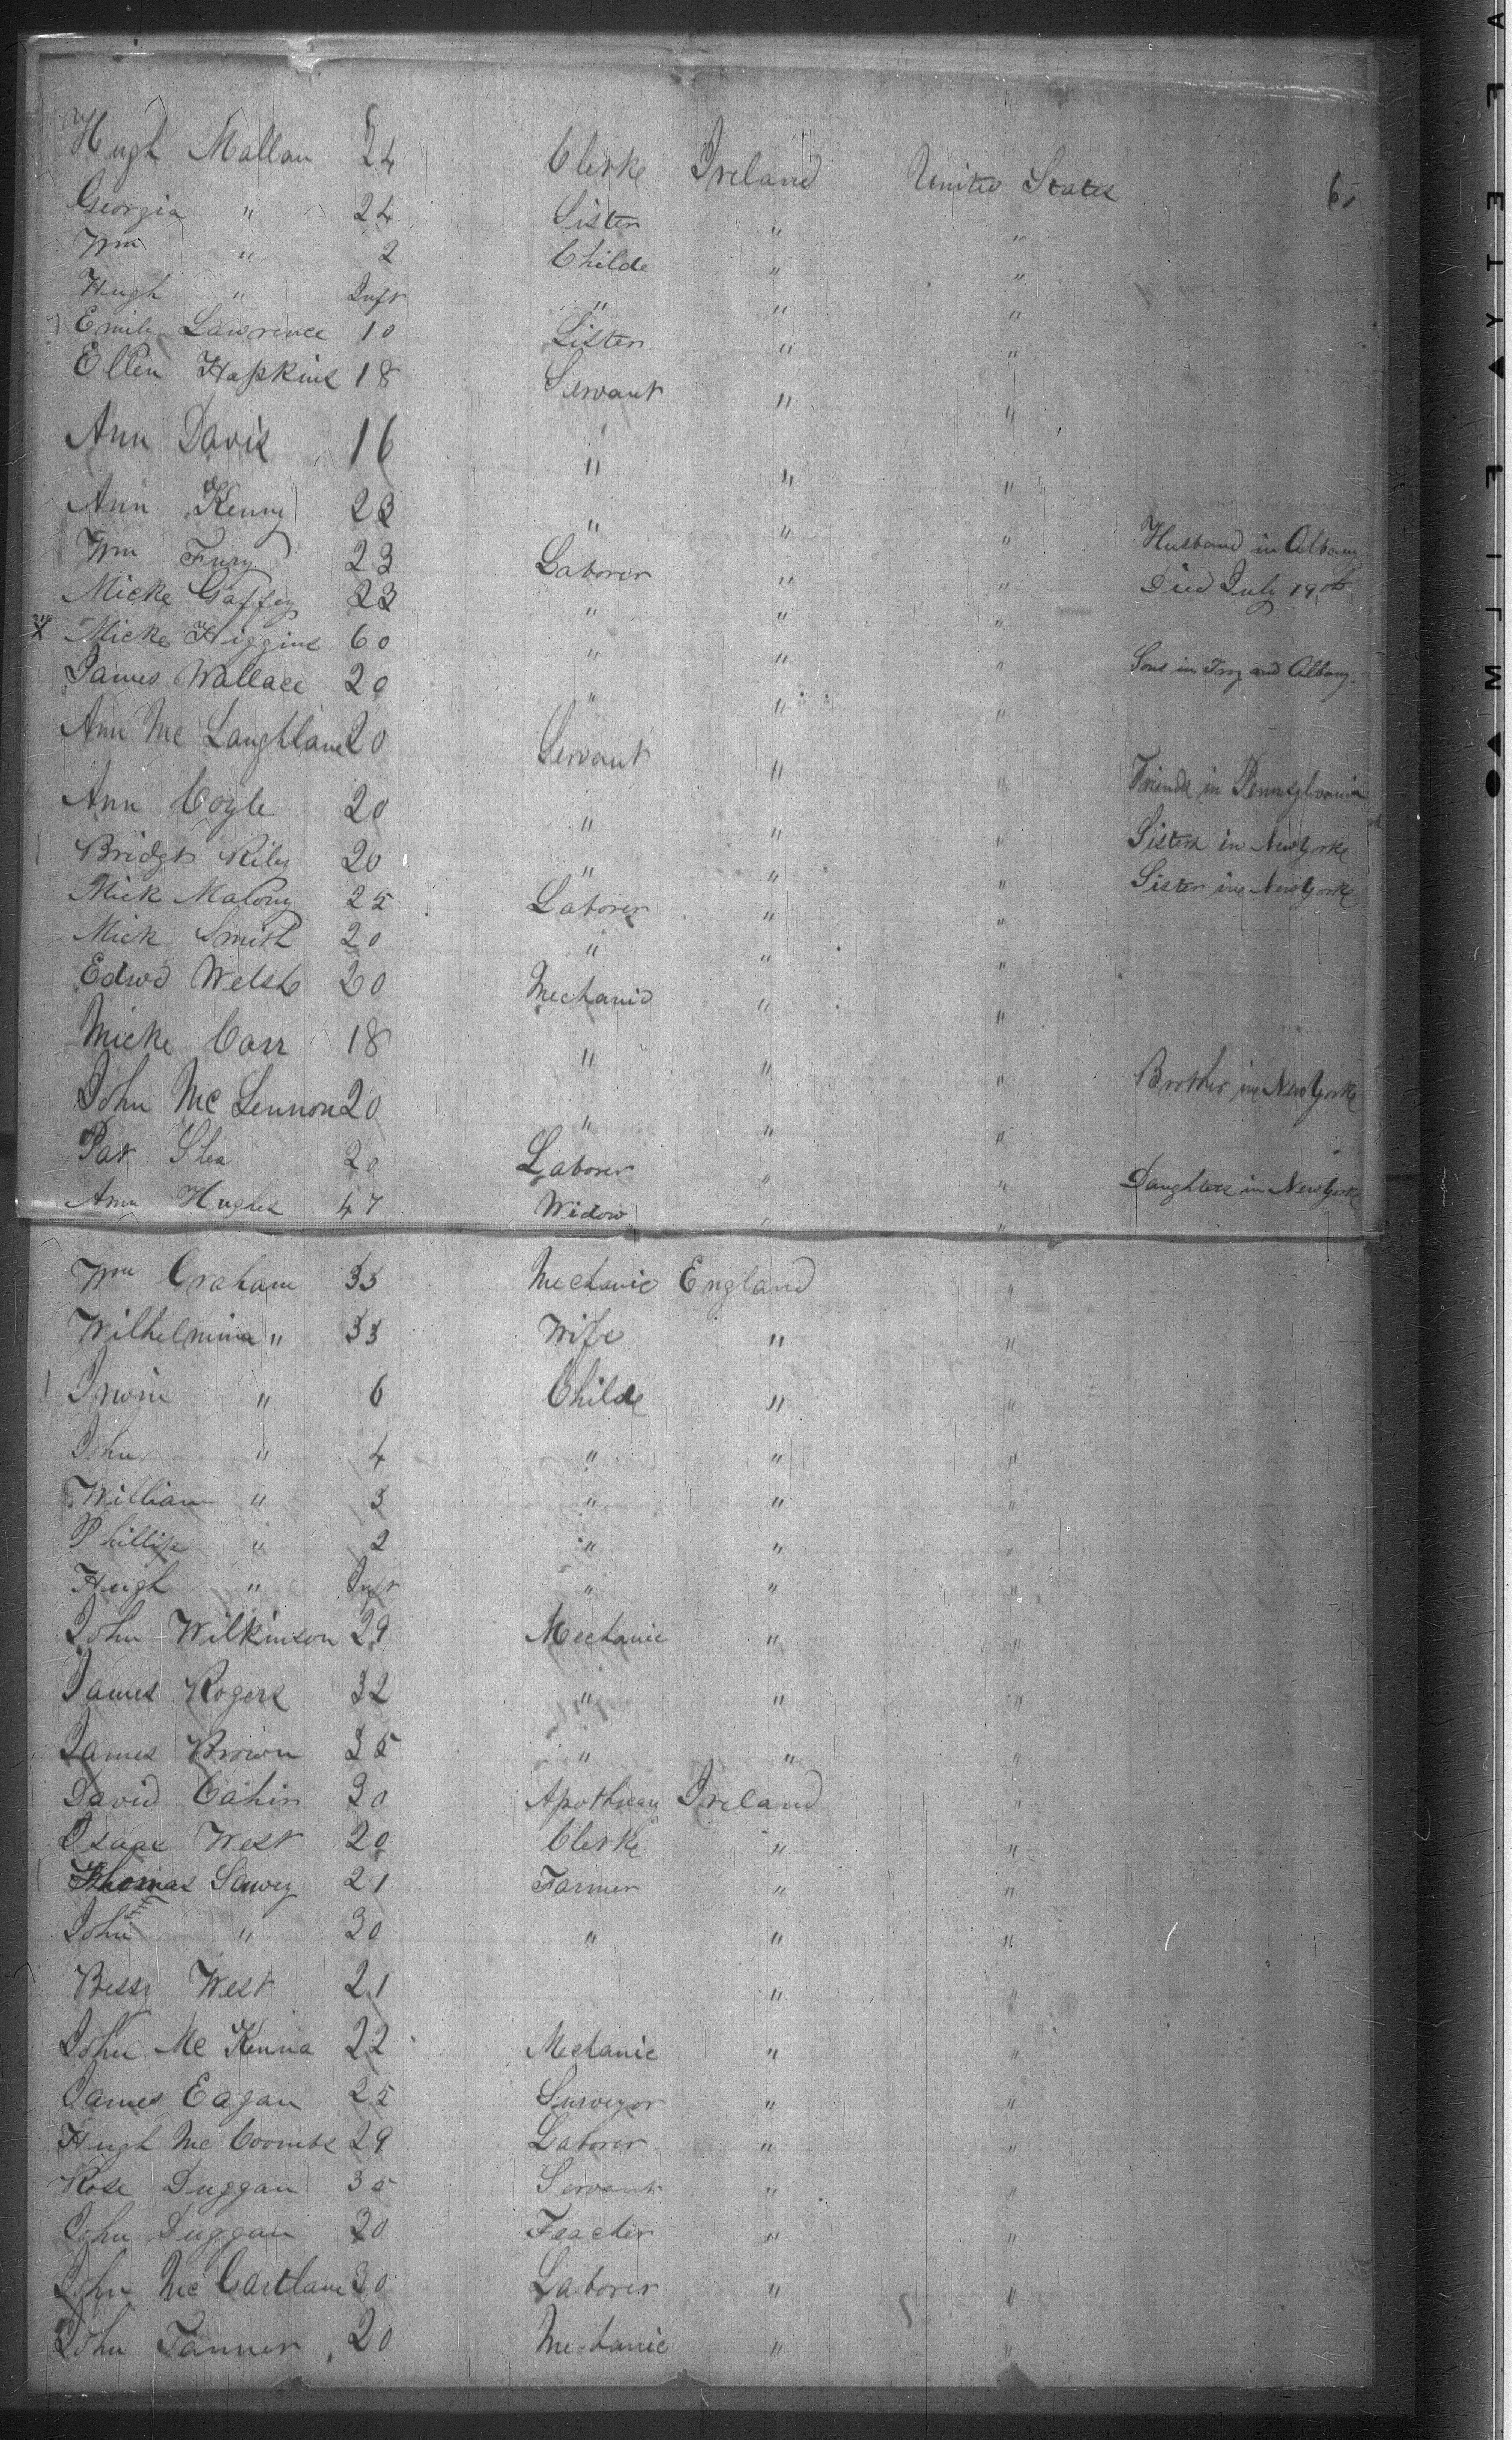 Hugh Mallan 24 Clerke Ireland United States 6.
Georgia " 24 Sister " "
Wm " 2 Childe " "
Hugh " Inft " " "
Emily Lawrence 10 Sister " "
Ellen Hopkins 18 Servant " "
Ann Davis 16 " " "
Ann Kenny 23 " " " Husband in Albany
Wm Fury 23 Laborer " " Died July 19th
Micke Gaffey 23 " " "
X Micke Higgins 60 " " " Sons in Troy and Albany
James Wallace 20 " " "
Ann Mc Laughlane 20 Servant " " Friends in Pennsylvania
Ann Coyle 20 " " " Sisters in New Yorke
Bridgt Riley 20 " " " Sister in New Yorke
Mick Malony 25 Laborer " "
Mick Smith 20 " " "
Edwd Welsh 20 Mechanic " "
Micke Carr 18 " " " Brother in New Yorke
John Mc Lennon 20 " " "
Pat Shea 20 Laborer " " Daughters in New Yorke
Ann Hughes 47 Widow " "
Wm Graham 33 Mechanic England "
Wilhelmina " 33 Wife " "
Irwin " 6 Childe " "
John " 4 " " "
William " 3 " " "
Phillip " 2 " " "
Hugh " Inft " " "
John Wilkinson 29 Mechanic " "
James Rogers 32 " " "
James Brown 35 " " "
David Cahin 30 Apothecary Ireland "
Isaac West 20 Clerke " "
Thomas Sawey 21 Farmer " "
John " 30 " " "
Bessy West 21 " "
John Mc Kenna 22 Mechanic " "
James Eagan 25 Surveyor " "
Hugh Mc Coombs 29 Laborer " "
Rose Duggan 35 Servant " "
John Duggan 30 Teacher " "
John Mc Cartlane 30 Laborer " "
John Tanner 20 Mechanic " "